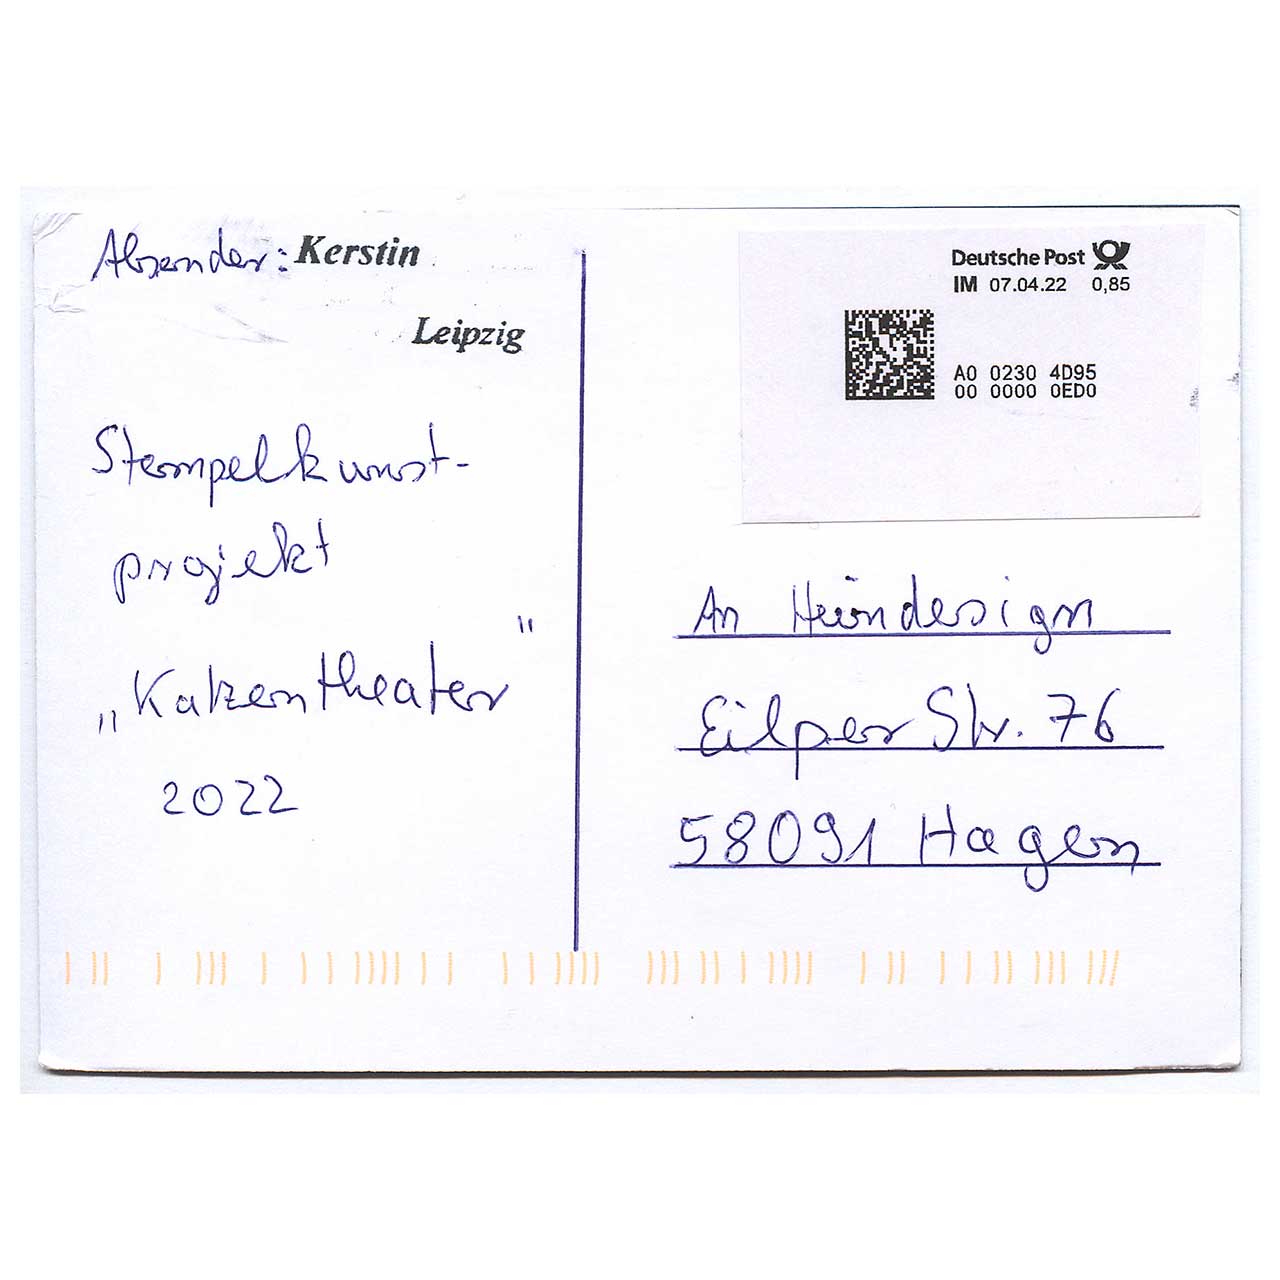 Absender: Kerstin
Leipzig
Stempelkunst-
projekt
„Katzentheater"
2022
Deutsche Post
IM 07.04.22 0,85
A0 0230 4D95
00 0000 0ED0
An Hündesign
Eilper Str. 76
58091 Hagen